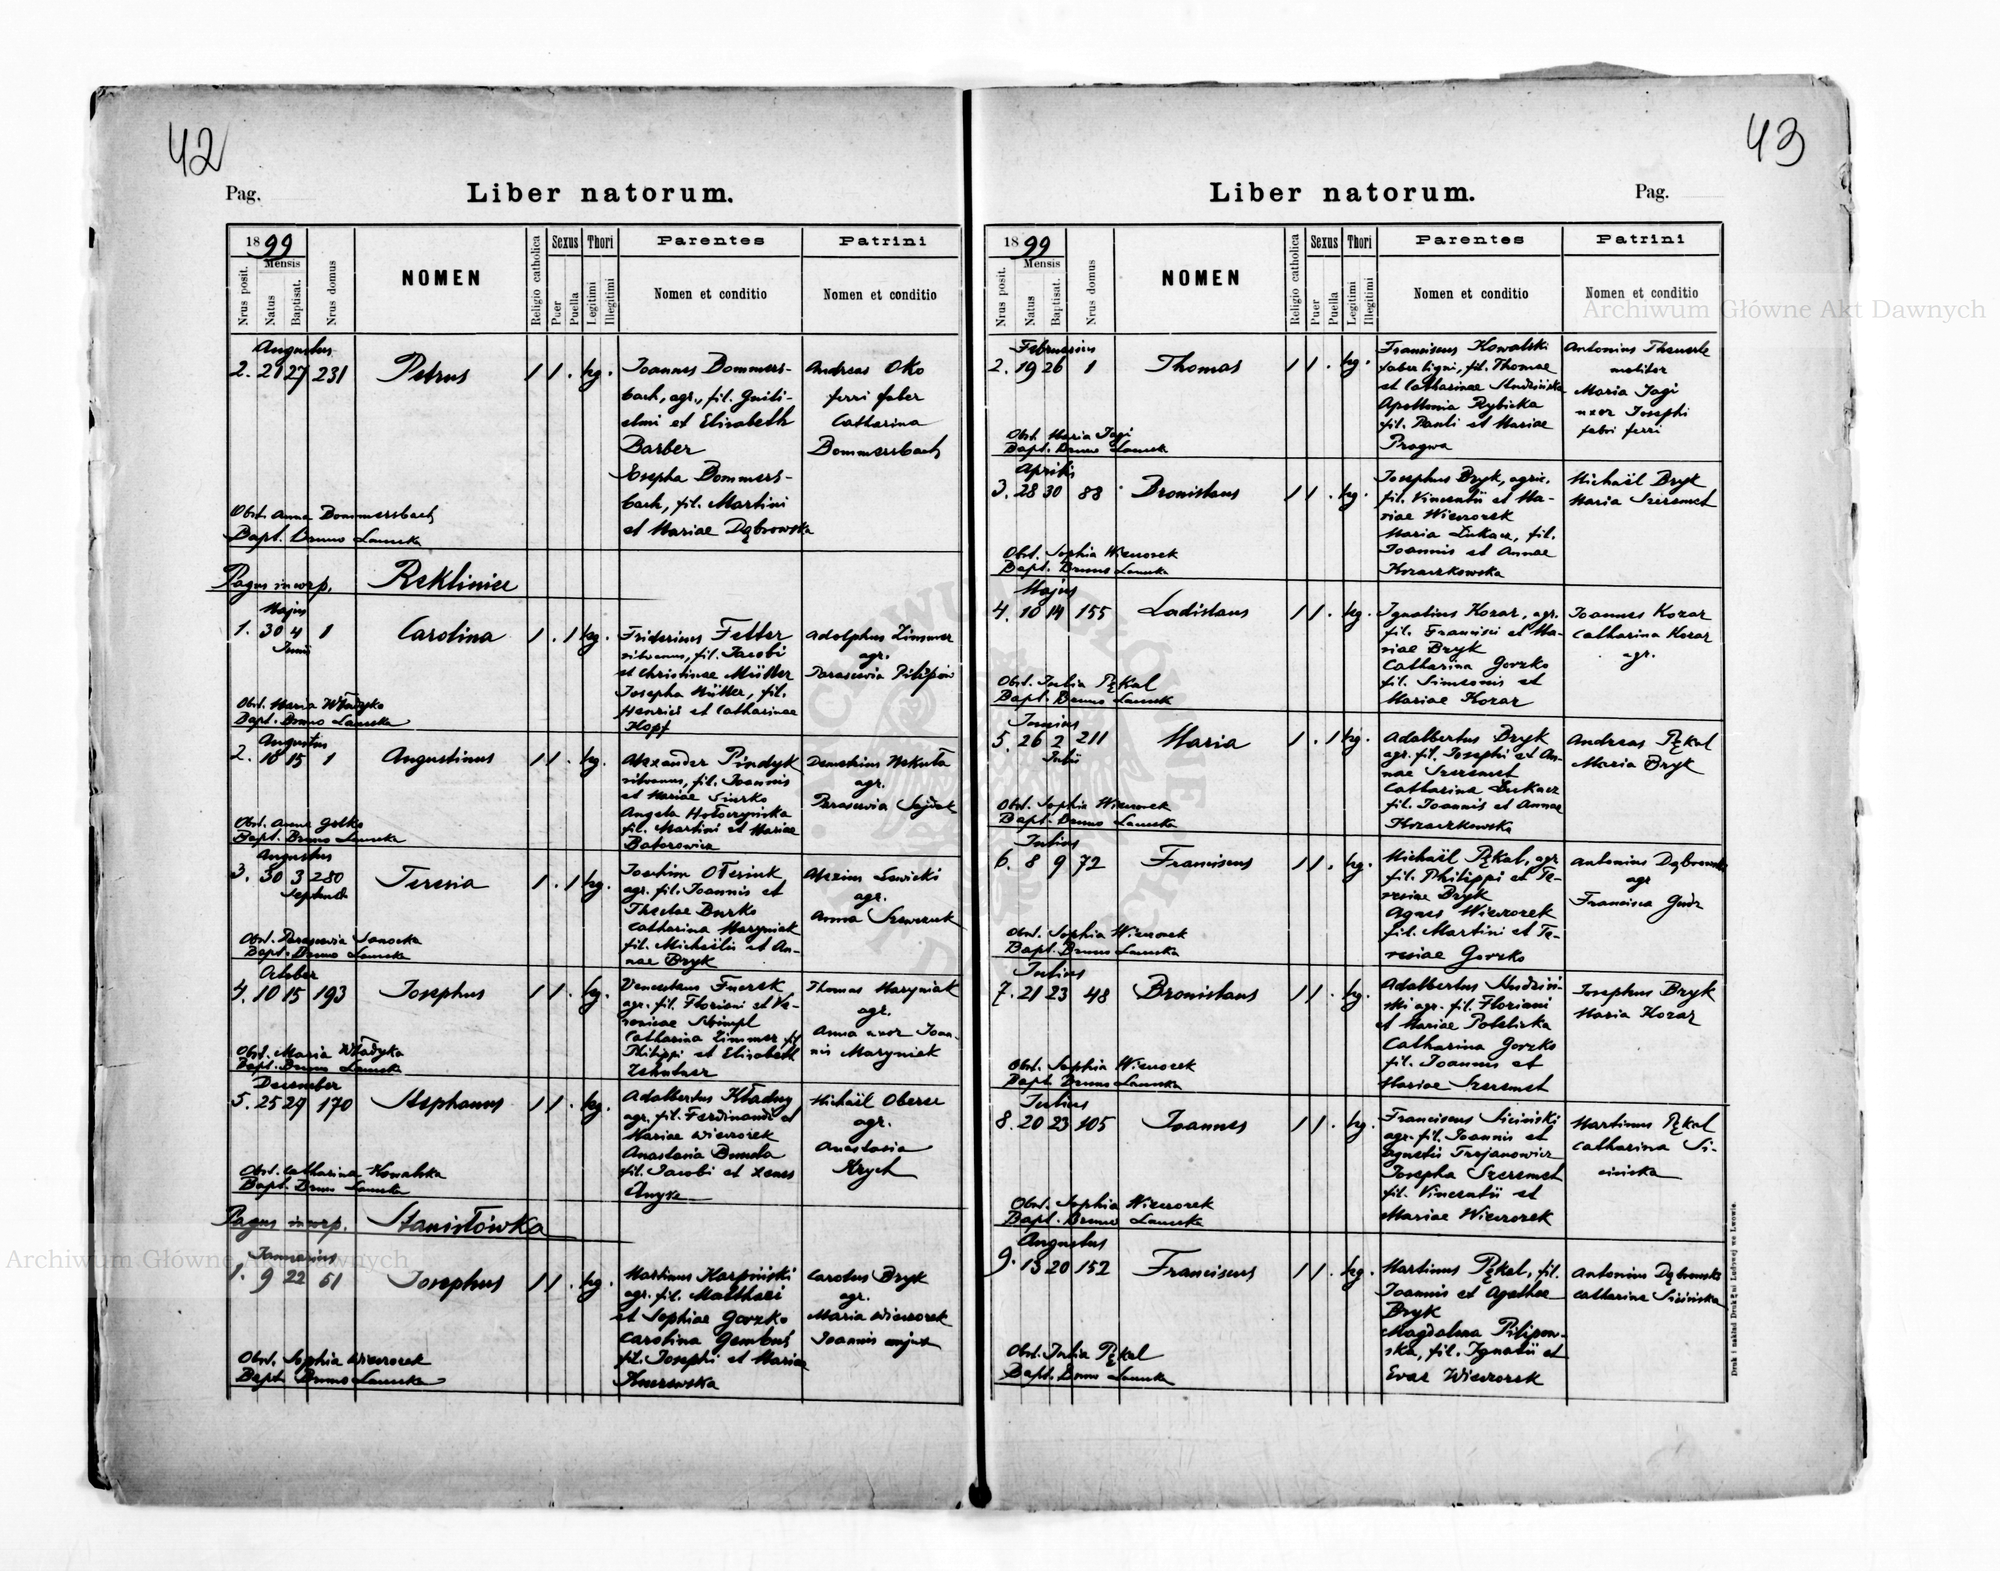 42
Pag.
Liber natorum.
1899
Mensis
Nrus posit.
Natus
Baptisat.
Nrus domus
NOMEN
Religio catholica
Sexus
Puer
Puella
Thori
Legitimi
Illegitimi
Parentes
Nomen et conditio
Patrini
Nomen et conditio
Augustus
2. 21 27 231 Petrus 1 1 . leg.
Joannes Bommers-
bach, agr., fil. Guili-
elmi et Elisabeth
Barber
Josepha Bommers-
bach, fil. Martini
et Mariae Dąbrowska
Andreas Oko
ferri faber
Catharina
Bommersbach
Obst. Anna Bommersbach
Bapt. Bruno
Pagus incorp. Rekliniec
Majus
1. 30 4 1 Carolina 1 . 1 leg.
Junii
Fridericus Fetter
fil. Jacobi
et Christinae Müller
Josepha Müller, fil.
Henrici et Catharinae
Hopf
Adolphus Zimmer
agr.
Parascevia Pilipów
Obst. Maria Władyka
Bapt. Bruno
Augustus
2. 10 15 1 Augustinus 1 1 . leg.
Alexander Pindyk
fil. Joannis
et Mariae
Angela Hołoczyńska
fil. Martini et Mariae
Batorowicz
Demetrius
agr.
Parascevia
Obst. Anna
Bapt. Bruno
Augustus
3. 30 3 280 Teresia 1 . 1 leg.
Septembr
Joachim
agr. fil. Joannis et
Theclae Burko
Catharina Maryniak
fil. Michaëlis et An-
nae Bryk
Alexius Lewicki
agr.
Anna Szewczuk
Obst. Parascevia
Bapt. Bruno
October
4. 10 15 193 Josephus 1 1 . leg.
Venceslaus
agr. fil. Floriani et Ve-
ronicae
Catharina Zimmer fil
Philippi et Elisabeth
Thomas Maryniak
agr.
Anna uxor Joan-
nis Maryniak
Obst. Maria Władyka
Bapt. Bruno
December
5. 25 29 170 Stephanus 1 1 . leg.
Adalbertus Kładny
agr. fil. Ferdinandi et
Mariae Wieczorek
Anastasia
fil. Jacobi et
Michaël
agr.
Anastasia
Krych
Obst. Catharina Kowalska
Bapt. Bruno
Pagus incorp. Stanisłówka
Januarius
1. 9 22 61 Josephus 1 1 . leg.
Martinus Karpiński
agr. fil. Matthaei
et Sophiae Gorzko
Carolina
fil. Josephi et Mariae
Carolus Bryk
agr.
Maria Wieczorek
Joannis conjux
Obst. Sophia Wieczorek
Bapt. Bruno
43
Liber natorum.
Pag.
1899
Mensis
Nrus posit.
Natus
Baptisat.
Nrus domus
NOMEN
Religio catholica
Sexus
Puer
Puella
Thori
Legitimi
Illegitimi
Parentes
Nomen et conditio
Patrini
Nomen et conditio
Februarius
2. 19 26 1 Thomas 1 1 . leg.
Franciscus Kowalski
faber ligni, fil. Thomae
et Catharinae Studzińska
Apollonia Rybicka
fil. Pauli et Mariae
Pragwa
Antonius Theuerle
molitor
Maria Jagi
uxor Josephi
fabri ferri
Obst. Maria Jagi
Bapt. Bruno
Aprilis
3. 28 30 88 Bronislaus 1 1 . leg.
Josephus Bryk, agric.
fil. Vincentii et Ma-
riae Wieczorek
Maria Łukacz, fil.
Joannis et Annae
Kozaczkowska
Michaël Bryk
Maria Szeremet
Obst. Sophia Wieczorek
Bapt. Bruno
Majus
4. 10 14 155 Ladislaus 1 1 . leg.
Ignatius Kozar, agr.
fil. Francisci et Ma-
riae Bryk
Catharina Gorzko
fil. Simeonis et
Mariae Kozar
Joannes Kozar
Catharina Kozar
agr.
Obst. Julia Pękal
Bapt. Bruno
Junius
5. 26 2 211 Maria 1 . 1 leg.
Julii
Adalbertus Bryk
agr. fil. Josephi et An-
nae Szeremet
Catharina Łukacz
fil. Joannis et Annae
Kozaczkowska
Andreas Pękal
Maria Bryk
Obst. Sophia Wieczorek
Bapt. Bruno
Julius
6. 8 9 72 Franciscus 1 1 . leg.
Michaël Pękal, agr.
fil. Philippi et Te-
resiae Bryk
Agnes Wieczorek
fil. Martini et Te-
resiae Gorzko
Antonius Dąbrowski
agr
Francisca
Obst. Sophia Wieczorek
Bapt. Bruno
Julius
7. 21 23 48 Bronislaus 1 1 . leg.
Adalbertus Studziń-
ski agr. fil. Floriani
et Mariae
Catharina Gorzko
fil. Joannis et
Mariae Szeremet
Josephus Bryk
Maria Kozar
Obst. Sophia Wieczorek
Bapt. Bruno
Julius
8. 20 23 105 Joannes 1 1 . leg.
Franciscus Siciński
agr. fil. Joannis et
Agnetis Trojanowicz
Josepha Szeremet
fil. Vincentii et
Mariae Wieczorek
Martinus Pękal
Catharina Si-
cińska
Obst. Sophia Wieczorek
Bapt. Bruno
Augustus
9. 13 20 152 Franciscus 1 1 . leg.
Martinus Pękal, fil.
Joannis et Agathae
Bryk
Magdalena Pilipow-
ska, fil. Ignatii et
Evae Wieczorek
Antonius Dąbrowski
Catharina Sicińska
Obst. Julia Pękal
Bapt. Bruno
Druk i nakład Drukarni Ludowej we Lwowie.
Archiwum Główne Akt Dawnych
Archiwum Główne Akt Dawnych